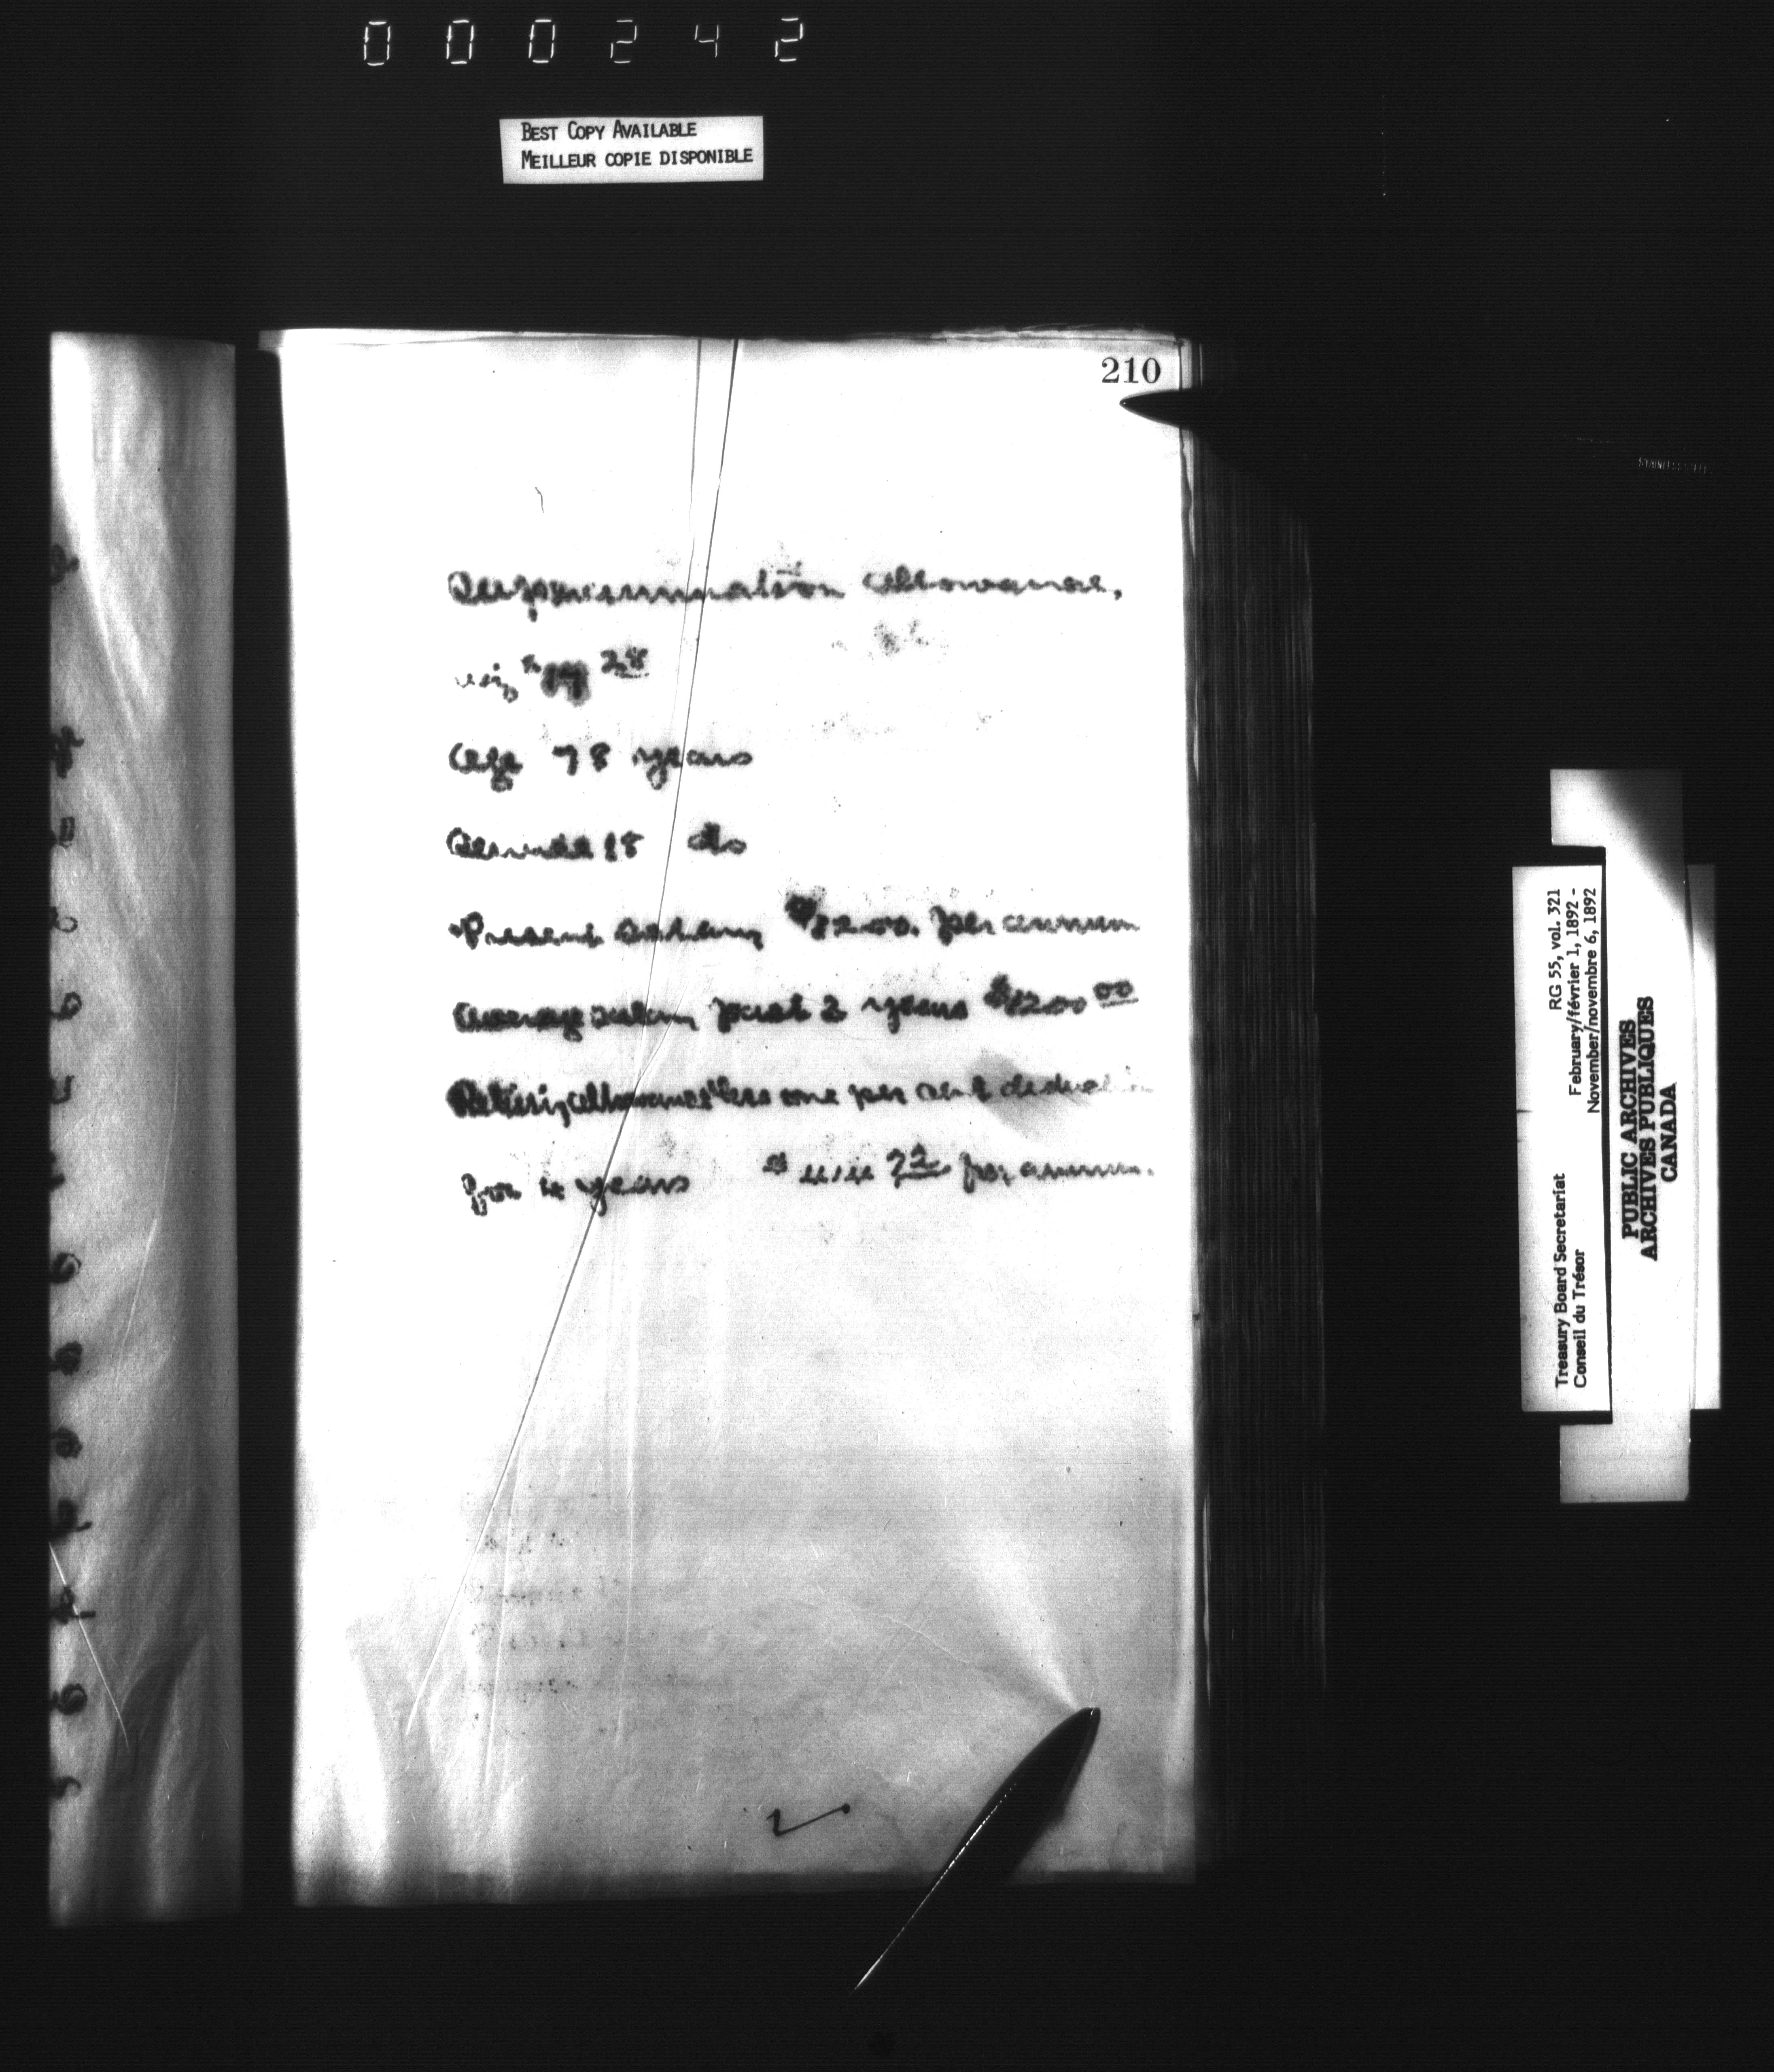 000242
BEST COPY AVAILABLE
MEILLEUR COPIE DISPONIBLE
210
Superannuation allowance,
viz $ 28
Age 78 years
Service 18 do
Present Salary $1200. per annum
Average salary past 3 years $1200 00
Retiring allowance less one per cent deduction
for years $ 72 per annum.
Treasury Board Secretariat RG 55, vol. 321
Conseil du Trésor February/février 1, 1892 -
November/novembre 6, 1892
PUBLIC ARCHIVES
ARCHIVES PUBLIQUES
CANADA